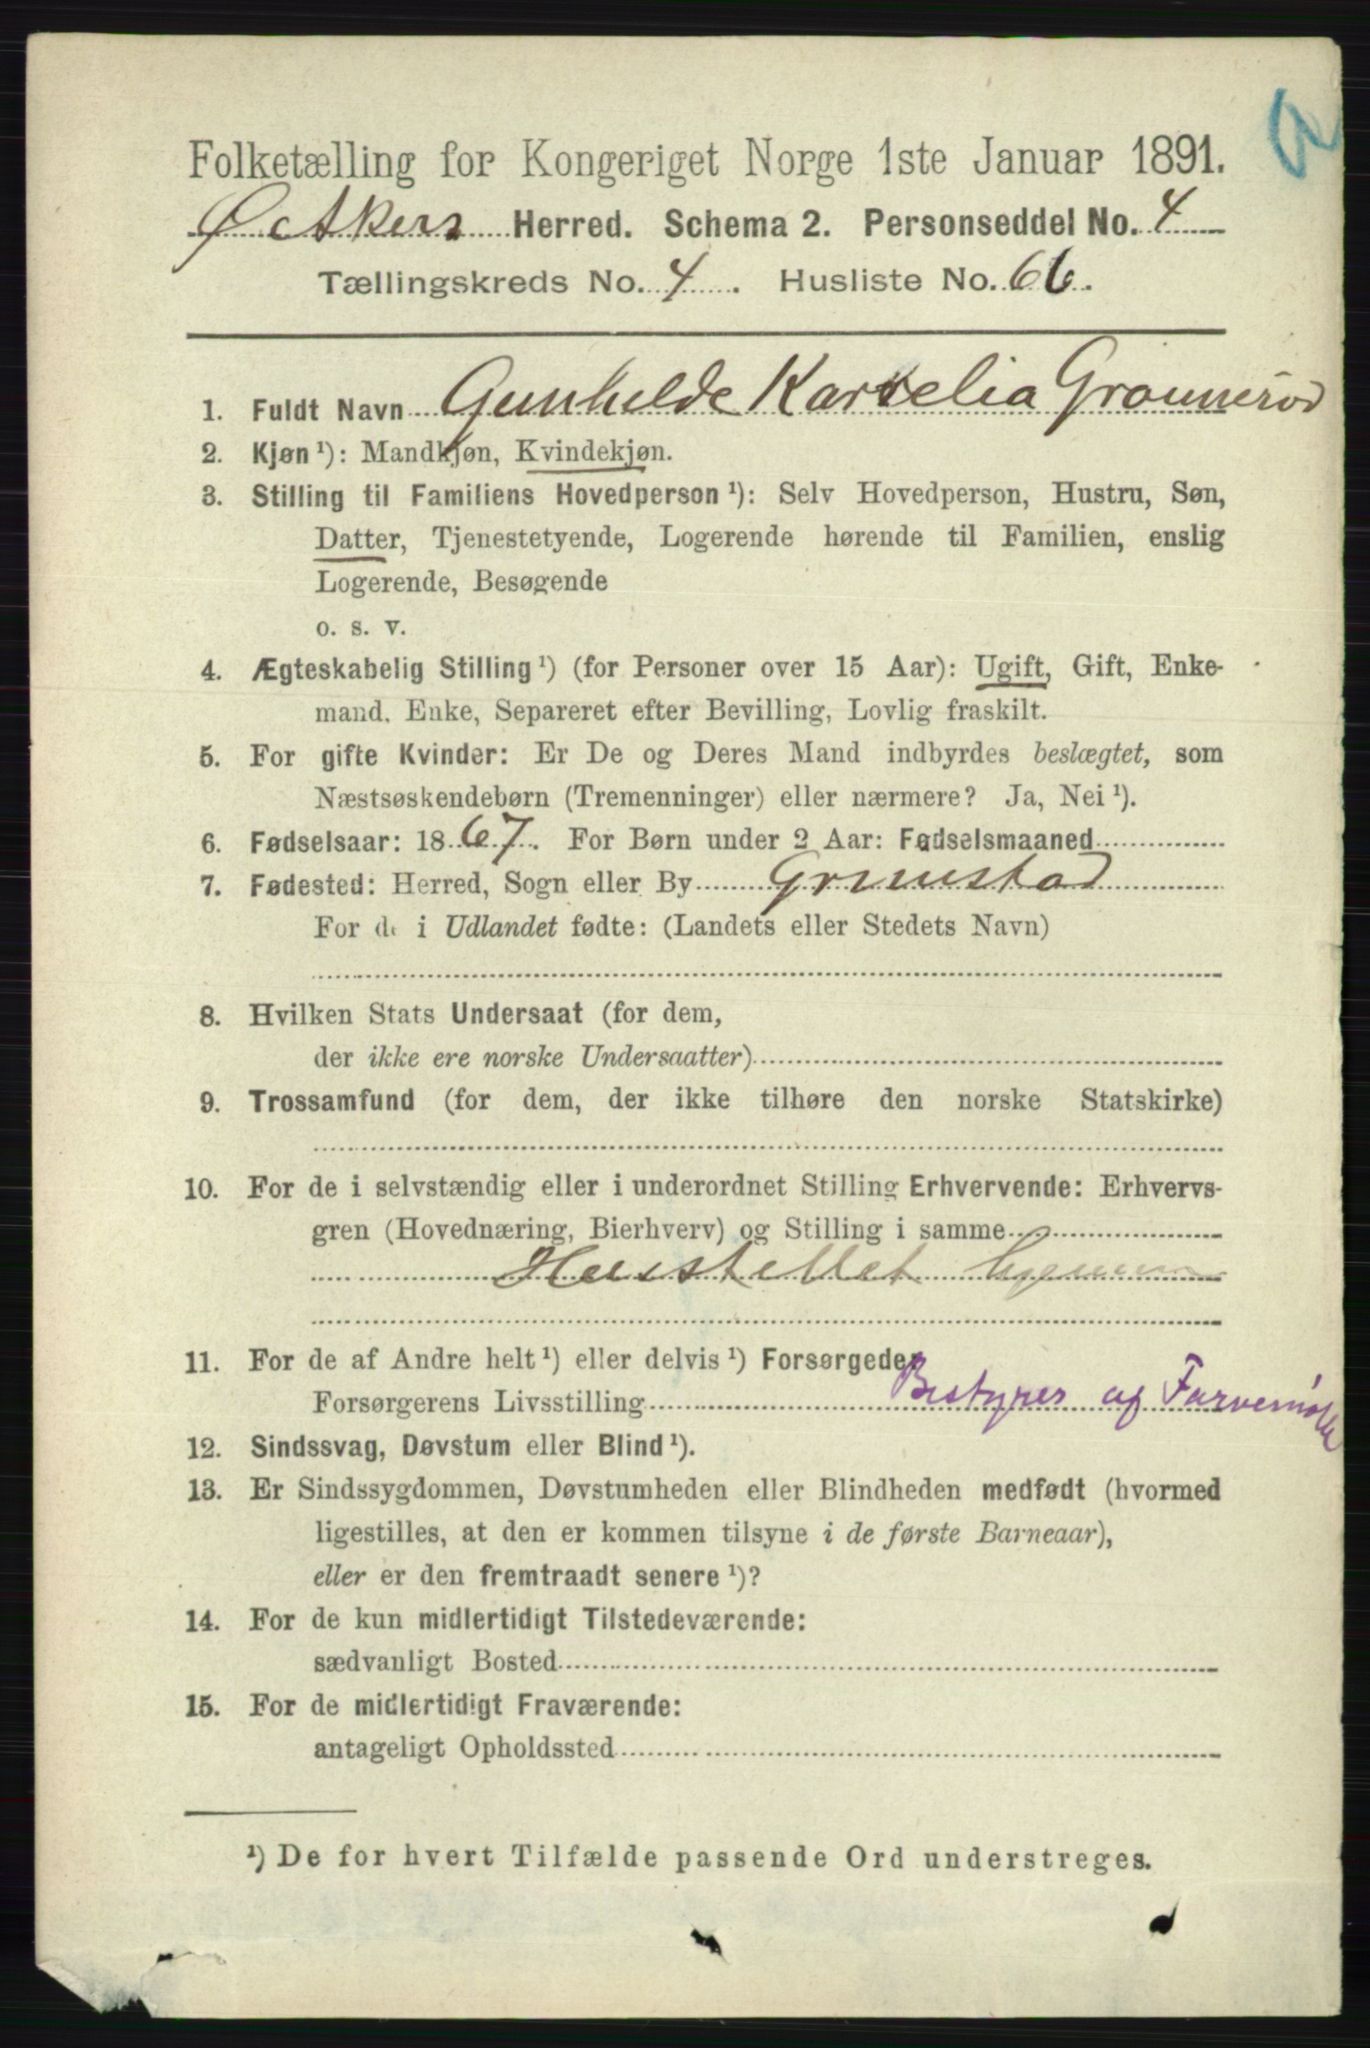 Folketælling for Kongeriget Norge 1ste Januar 1891.
Ø. Akers Herred. Schema 2. Personseddel No. 4
Tællingskreds No. 4. Husliste No. 66.
1. Fuldt Navn Gunhilde Karrelia
2. Kjøn¹): Mandkjøn, Kvindekjøn.
3. Stilling til Familiens Hovedperson¹): Selv Hovedperson, Hustru, Søn,
Datter, Tjenestetyende, Logerende hørende til Familien, enslig
Logerende, Besøgende
o. s. v.
4. Ægteskabelig Stilling¹) (for Personer over 15 Aar): Ugift, Gift, Enke-
mand, Enke, Separeret efter Bevilling, Lovlig fraskilt.
5. For gifte Kvinder: Er De og Deres Mand indbyrdes beslægtet, som
Næstsøskendebørn (Tremenninger) eller nærmere? Ja, Nei¹).
6. Fødselsaar: 1867. For Børn under 2 Aar: Fødselsmaaned
7. Fødested: Herred, Sogn eller By Grimstad
For de i Udlandet fødte: (Landets eller Stedets Navn)
8. Hvilken Stats Undersaat (for dem,
der ikke ere norske Undersaatter)
9. Trossamfund (for dem, der ikke tilhøre den norske Statskirke)
10. For de i selvstændig eller i underordnet Stilling Erhvervende: Erhvervs-
gren (Hovednæring, Bierhverv) og Stilling i samme
Husstellet hjemme
11. For de af Andre helt¹) eller delvis¹) Forsørgede:
Forsørgerens Livsstilling Bestyrer af Farvemølle
12. Sindssvag, Døvstum eller Blind¹).
13. Er Sindssygdommen, Døvstumheden eller Blindheden medfødt (hvormed
ligestilles, at den er kommen tilsyne i de første Barneaar),
eller er den fremtraadt senere¹)?
14. For de kun midlertidigt Tilstedeværende:
sædvanligt Bosted
15. For de midlertidigt Fraværende:
antageligt Opholdssted
¹) De for hvert Tilfælde passende Ord understreges.